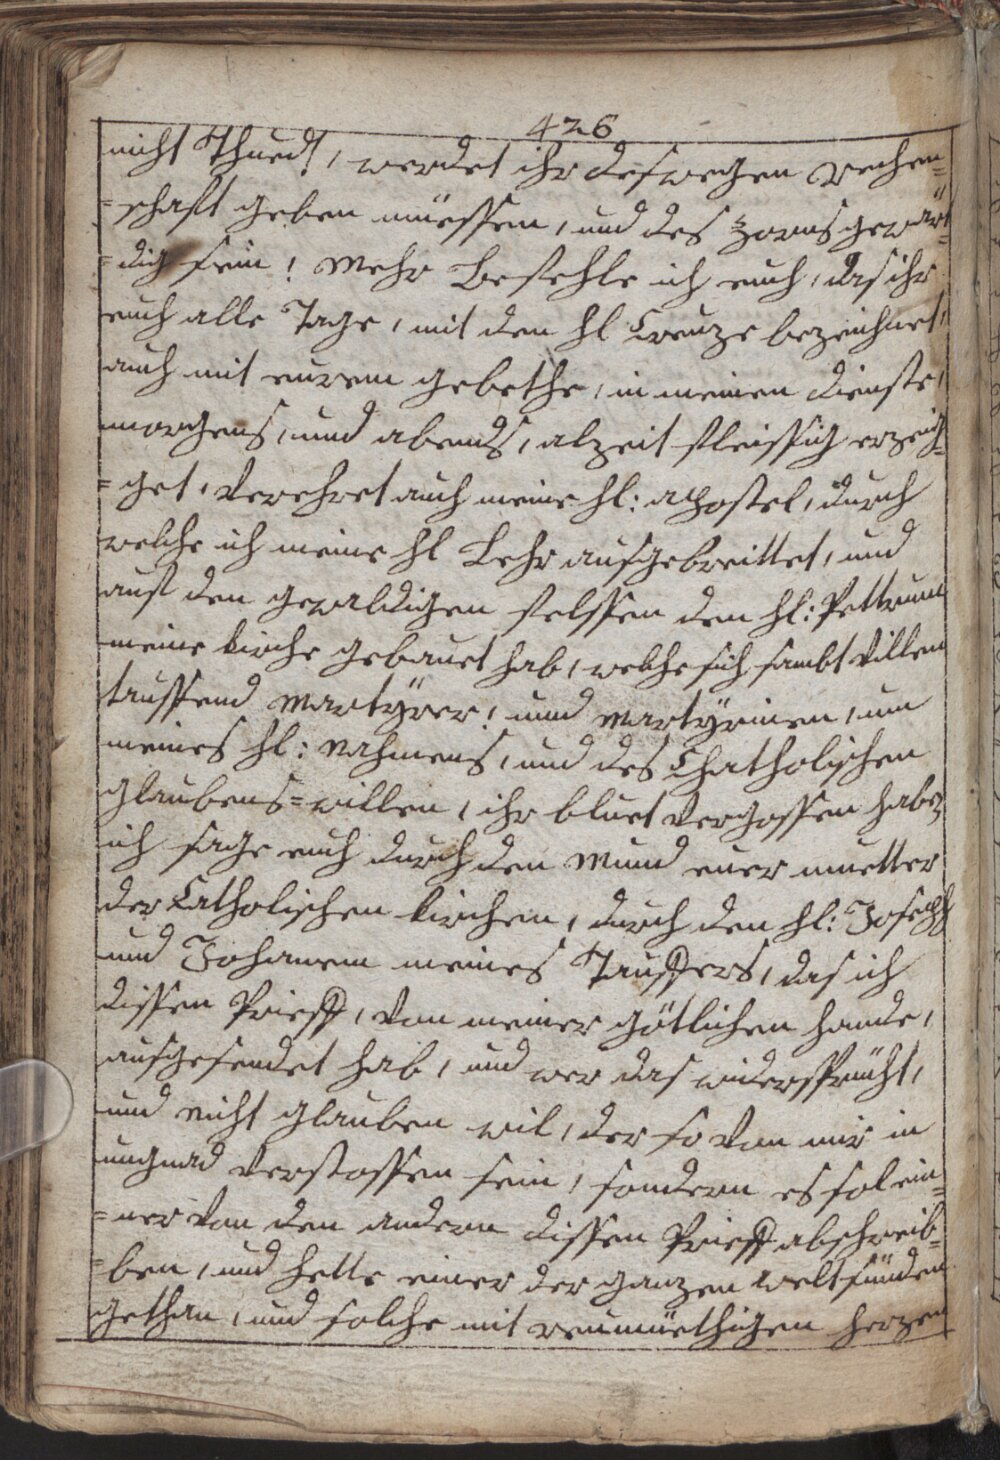 426
nicht Thued!, werdet ihr deswegen rechen=
=schaft geben müessen, und des zorns gewär=
=dig sein! Mehr Befehle ich euch, das ihr
euch alle Tage, mit den hl Creuze bezeichnet,
auch mit eurem gebethe, in meinen dienste,
morgens, und abends, alzeit fleissig erzeich=
=get, Verehret auch meine hl: apostel, durch
welche ich meine hl Lehr ausgebreittet, und
auf den gewaldigen felssen den hl: Pettrum
meine kirche gebauet hab, welche sich sambt Villen
taussend Martÿrer, und martÿrinen, um
meines hl: Nahmens, und des Chatholischen
glaubens=willen, ihr bluet Vergossen haben,
ich sage euch durch den Mund euer muetter
der Catholischen kirchen, durch den hl: Joseph
und Johannem meines Tauffers, das ich
dissen Prieff, Von meiner götlichen hande,
ausgesendet hab, und wer das widerspricht,
und nicht glauben wil, der so Von mir in
ungnad Verstossen sein, sondern es sol ein=
=ner Von den andern dissen Prieff abschreib=
=ben, und hette einer der ganzen welt sünden
gethan, und solche mit reumüethigen herzen